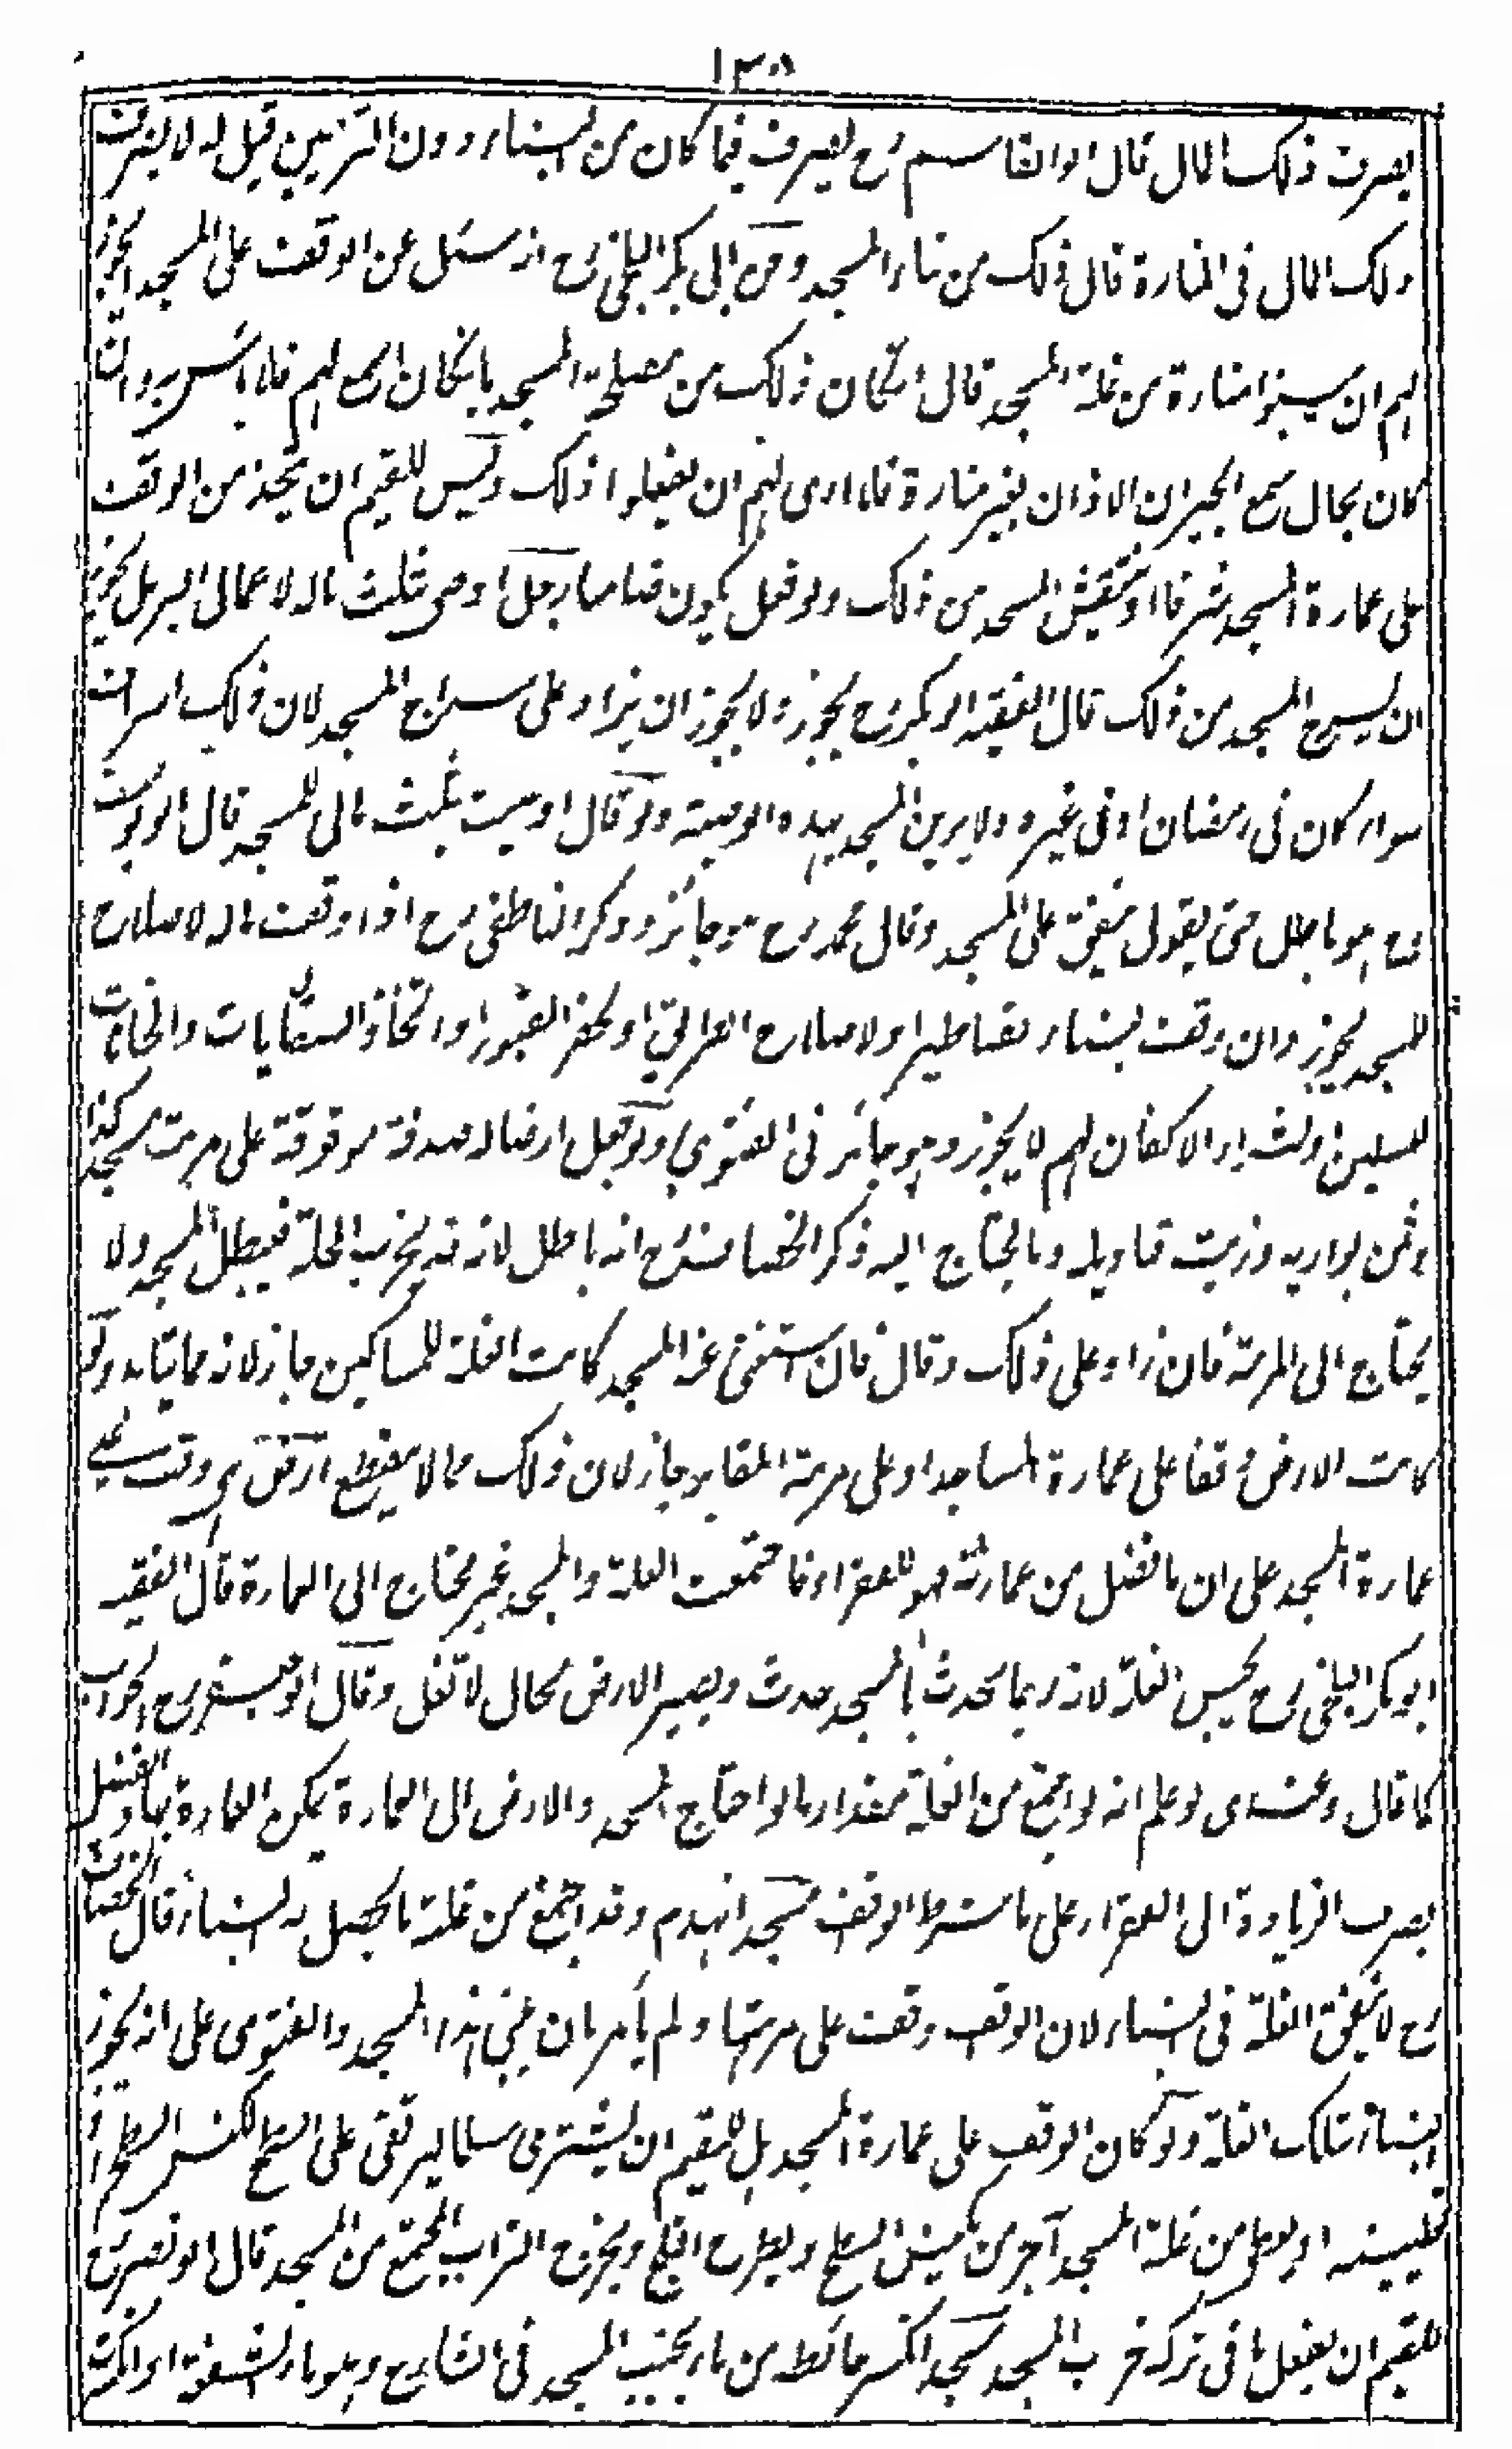 ١٣٨
يصرف ذلك المال قال ابو القاسم رح يصرف فيما كان من البناء دون التزيين قيل له لا يصرف
ذلك المال فى المنارة قال ذلك من بناء المسجد وعن ابى بكر البلخى رح انه سئل عن الوقف على المسجد ايجوز
لهم ان يبنوا منارة من غلة المسجد قال ان كان ذلك من مصلحة المسجد بان كان اسمع لهم فلا بأس به وان
كان بحال يسمع الجيران الاذان بغير منارة فلا ارى لهم ان يفعلوا ذلك وليس للقيم ان يتخذ من الوقف
على عمارة المسجد شرفا او ينقش المسجد من ذلك ولو فعل يكون ضامنا رجل اوصى بثلث ماله لاعمال البر هل يجوز
ان يسرج المسجد من ذلك قال الفقيه ابو بكر رح يجوز ولا يجوز ان يزاد على سراج المسجد لان ذلك اسراف
سواء كان فى رمضان او فى غيره ولا يزين المسجد بهذه الوصية ولو قال اوصيت بثلث مالى للمسجد قال ابو يوسف
رح هو باطل حتى يقول ينفق على المسجد وقال محمد رح هو جائز وذكر الناطفى رح اذا وقف ماله لاصلاح
المسجد يجوز وان وقف لبناء القناطير او لاصلاح الطريق او لحفر القبور او اتخاذ السقايات والخانات
للمسلمين او لشراء الاكفان لهم لا يجوز وهو جائز فى الفتوى ولو جعل ارضا له صدقة موقوفة على مرمت مسجد كذا
وثمن بواريه وزيت قناديله وما يحتاج اليه ذكر الخصاف رح انه باطل لانه قد يخرب المحلة فيبطل المسجد ولا
يحتاج الى المرمة فان زاد على ذلك وقال فان استغنى عنه المسجد كانت الغلة للمساكين جاز لانه مما يتأبد ولو
كانت الارض وقفا على عمارة المساجد او على مرمة المقابر جاز لان ذلك مما لا ينقطع ارض وقفت على
عمارة المسجد على ان ما فضل من عمارته فهو للفقراء فاجتمعت الغلة والمسجد غير محتاج الى العمارة قال الفقيه
ابو بكر البلخى رح يحبس الغلة لانه ربما يحدث بالمسجد حدث ويصير الارض بحال لا تغل وقال ابو جعفر رح الجواب
كما قال وعندى لو علم انه لو اجتمع من الغلة مقدار ما لو احتاج المسجد والارض الى العمارة يمكن العمارة بها ويفضل
يصرف الزيادة الى الفقراء على ما شرط الواقف مسجد انهدم وقد اجتمع من غلته ما يحصل به البناء قال الخصاف
رح لا ينفق الغلة فى البناء لان الواقف وقف على مرمتها ولم يأمر بان يبنى هذا المسجد والفتوى على انه يجوز
البناء بتلك الغلة ولو كان الوقف على عمارة المسجد هل للقيم ان يشترى سلما ليرتقى على السطح لكنس السطح او
تطيينه او يعطى من غلة المسجد اجر من يكنس السطح ويطرح الثلج ويخرج التراب المجتمع من المسجد قال ابو نصر رح
للقيم ان يفعل ما فى تركه خراب المسجد مسجد انكسر حائطه من ماء بجنب المسجد فى الشارع وهو ماء الشفة او انكسرت